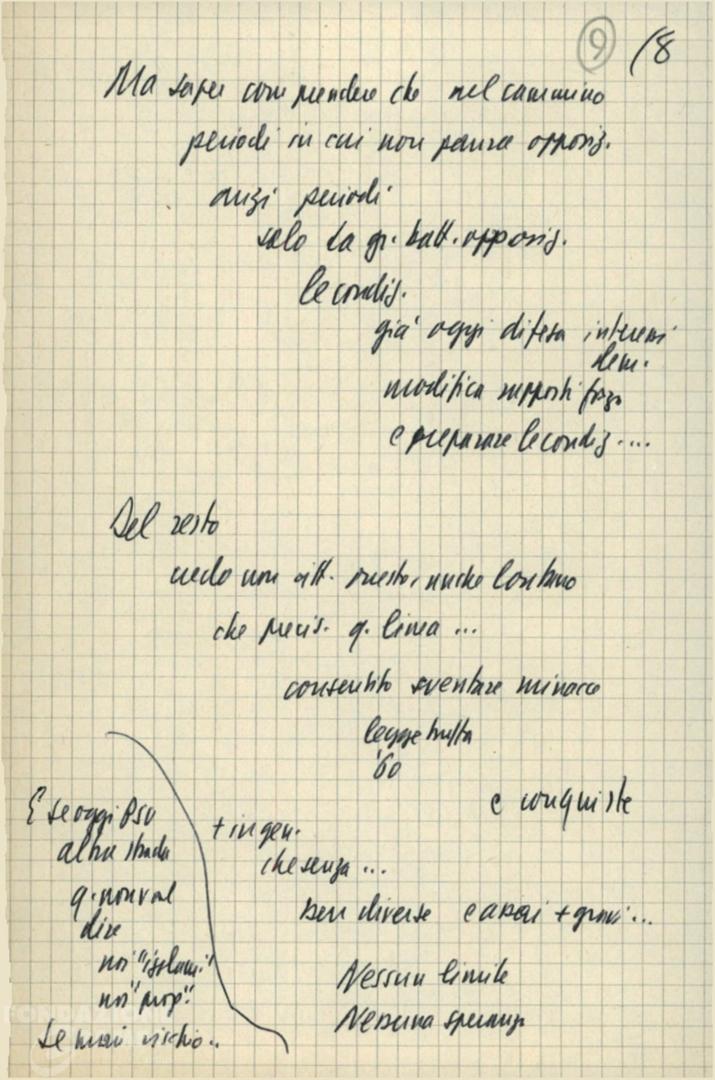 9 18
Ma saper comprendere che nel cammino
periodi in cui non paura opposiz.
anzi periodi
solo da gr. batt. opposiz.
le condiz.
già oggi difesa interessi
dem.
modifica rapporti forza
e preparare le condiz....
Del resto
vedo non diff. questo, anche lontano
che precis. q. linea ...
consentito sventare minacce
legge truffa
'60
e conquiste
+ in gen.
che senza ...
ben diverse e assai + gravi...
Nessun limite
Nessuna speranza
E se oggi PSU
altra strada
q. non vol
dire
noi "isolam."
noi "prop".
Se mai rischio..
FONDAZ